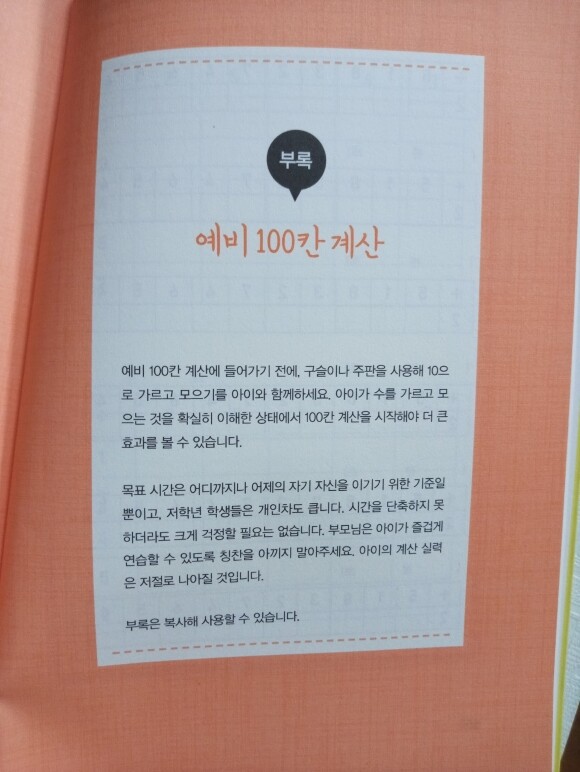 부록
예비 100칸 계산
예비 100칸 계산에 들어가기 전에, 구슬이나 주판을 사용해 10으
로 가르고 모으기를 아이와 함께하세요. 아이가 수를 가르고 모
으는 것을 확실히 이해한 상태에서 100칸 계산을 시작해야 더 큰
효과를 볼 수 있습니다.
목표 시간은 어디까지나 어제의 자기 자신을 이기기 위한 기준일
뿐이고, 저학년 학생들은 개인차도 큽니다. 시간을 단축하지 못
하더라도 크게 걱정할 필요는 없습니다. 부모님은 아이가 즐겁게
연습할 수 있도록 칭찬을 아끼지 말아주세요. 아이의 계산 실력
은 저절로 나아질 것입니다.
부록은 복사해 사용할 수 있습니다.